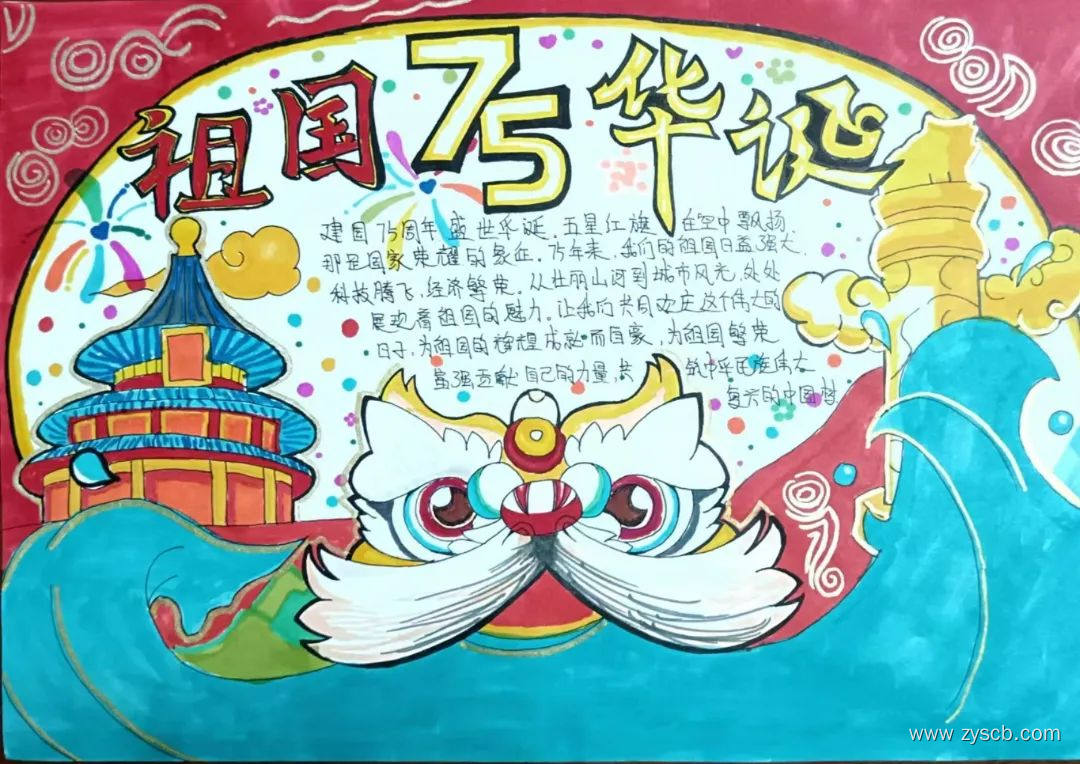 祖国75华诞
建国75周年盛世华诞。五星红旗，在空中飘扬，
那是国家荣耀的象征。75年来，我们的祖国日益强大，
科技腾飞，经济繁荣。从壮丽山河到城市风光，处处
展现着祖国的魅力。让我们共同欢庆这个伟大的
日子，为祖国的辉煌成就而自豪，为祖国繁荣
富强贡献自己的力量，共 筑中华民族伟大
复兴的中国梦
www.zyscb.com